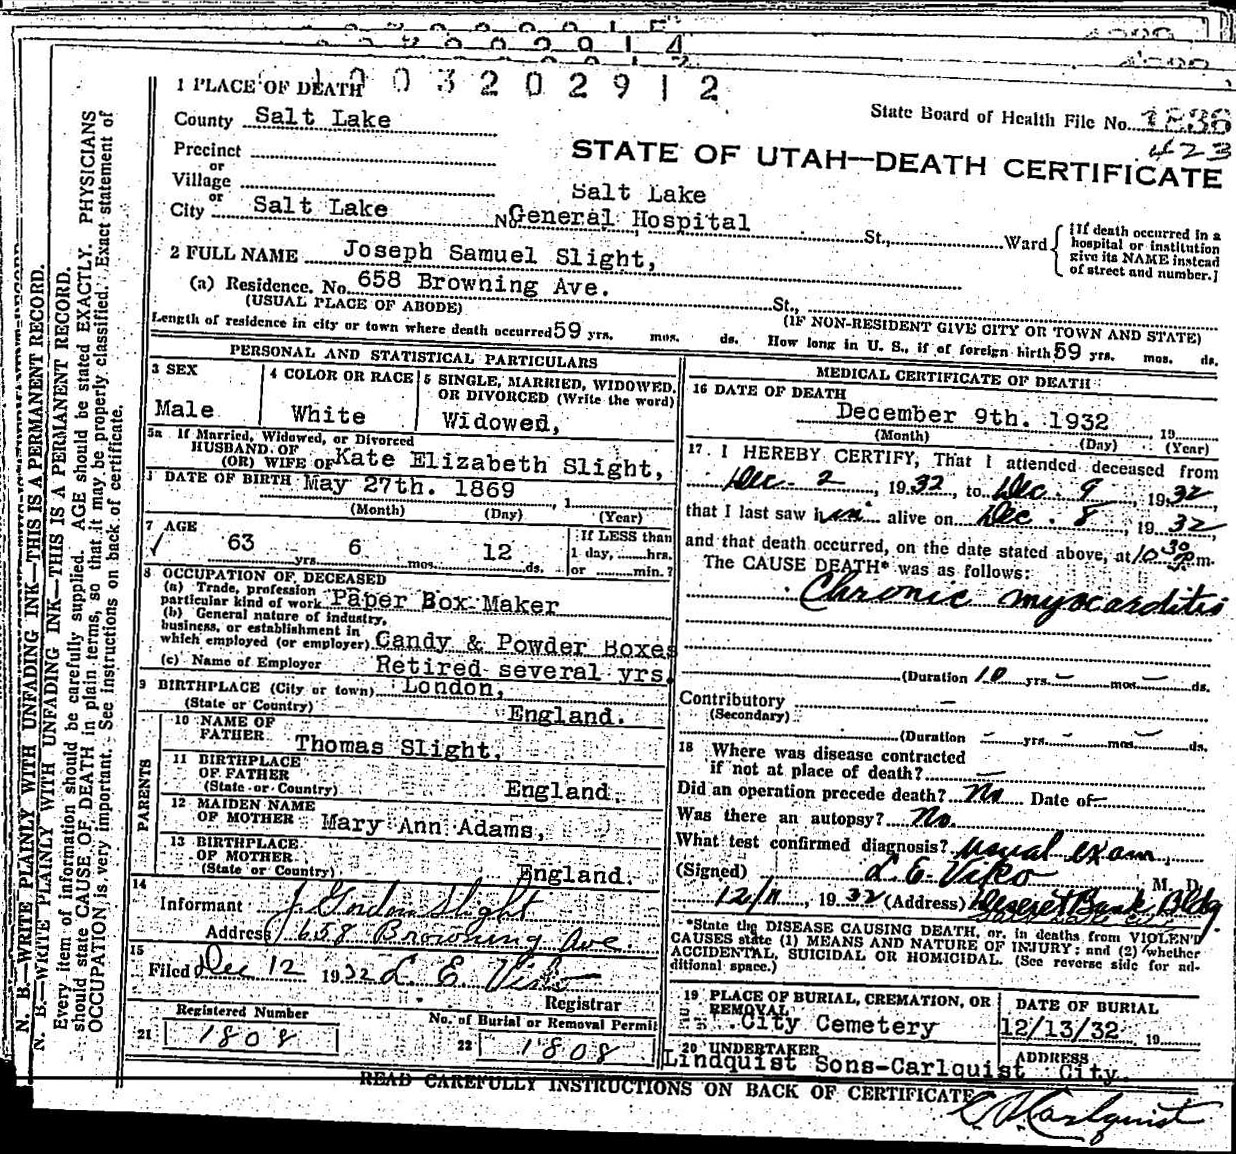 1003202912
1 PLACE OF DEATH
State Board of Health File No. 1836
423
County Salt Lake
STATE OF UTAH—DEATH CERTIFICATE
Precinct
or
Village
or
City Salt Lake No. Salt Lake General Hospital St., Ward
[If death occurred in a hospital or institution give its NAME instead of street and number.]
2 FULL NAME Joseph Samuel Slight,
(a) Residence. No. 658 Browning Ave. St.,
(USUAL PLACE OF ABODE) (IF NON-RESIDENT GIVE CITY OR TOWN AND STATE)
Length of residence in city or town where death occurred 59 yrs. mos. ds. How long in U. S., if of foreign birth 59 yrs. mos. ds.
PERSONAL AND STATISTICAL PARTICULARS
3 SEX
Male
4 COLOR OR RACE
White
5 SINGLE, MARRIED, WIDOWED, OR DIVORCED (Write the word)
Widowed,
5a If Married, Widowed, or Divorced
HUSBAND OF
(OR) WIFE OF Kate Elizabeth Slight,
DATE OF BIRTH May 27th. 1869, 1
(Month) (Day) (Year)
7 AGE
63 yrs. 6 mos. 12 ds.
If LESS than
1 day, hrs.
or min.?
8 OCCUPATION OF DECEASED
(a) Trade, profession
particular kind of work Paper Box Maker
(b) General nature of industry,
business, or establishment in
which employed (or employer) Candy & Powder Boxes
(c) Name of Employer Retired several yrs.
9 BIRTHPLACE (City or town) London,
(State or Country) England.
PARENTS
10 NAME OF FATHER Thomas Slight,
11 BIRTHPLACE OF FATHER
(State or Country) England.
12 MAIDEN NAME OF MOTHER Mary Ann Adams,
13 BIRTHPLACE OF MOTHER
(State or Country) England.
14
Informant J. Gordon Slight
Address 658 Browning Ave.
15
Filed Dec 12 1932 L. E. Viko
Registrar
Registered Number
21 1808
No. of Burial or Removal Permit
22 1808
MEDICAL CERTIFICATE OF DEATH
16 DATE OF DEATH
December 9th. 1932, 19
(Month) (Day) (Year)
17 I HEREBY CERTIFY, That I attended deceased from
Dec. 2, 1932, to Dec. 9, 1932
that I last saw him alive on Dec. 8, 1932,
and that death occurred, on the date stated above, at 10 30 P.m.
The CAUSE DEATH* was as follows:
Chronic myocarditis
(Duration 10 yrs. - mos. - ds.
Contributory -
(Secondary)
(Duration - yrs. - mos. - ds.
18 Where was disease contracted
if not at place of death? -
Did an operation precede death? No Date of -
Was there an autopsy? No.
What test confirmed diagnosis? usual exam.
(Signed) L. E. Viko M. D.
12/11, 1932 (Address) Deseret Bank Bldg
*State the DISEASE CAUSING DEATH, or, in deaths from VIOLENT
CAUSES state (1) MEANS AND NATURE OF INJURY; and (2) whether
ACCIDENTAL, SUICIDAL OR HOMICIDAL. (See reverse side for ad-
ditional space.)
19 PLACE OF BURIAL, CREMATION, OR REMOVAL
City Cemetery
DATE OF BURIAL
12/13/32 19
20 UNDERTAKER
Lindquist Sons-Carlquist
ADDRESS
City.
READ CAREFULLY INSTRUCTIONS ON BACK OF CERTIFICATE
C. A. Carlquist
N. B.—WRITE PLAINLY WITH UNFADING INK—THIS IS A PERMANENT RECORD.
N. B.—WRITE PLAINLY WITH UNFADING INK—THIS IS A PERMANENT RECORD.
Every item of information should be carefully supplied. AGE should be stated EXACTLY. PHYSICIANS
should state CAUSE OF DEATH in plain terms, so that it may be properly classified. Exact statement of
OCCUPATION is very important. See instructions on back of certificate.